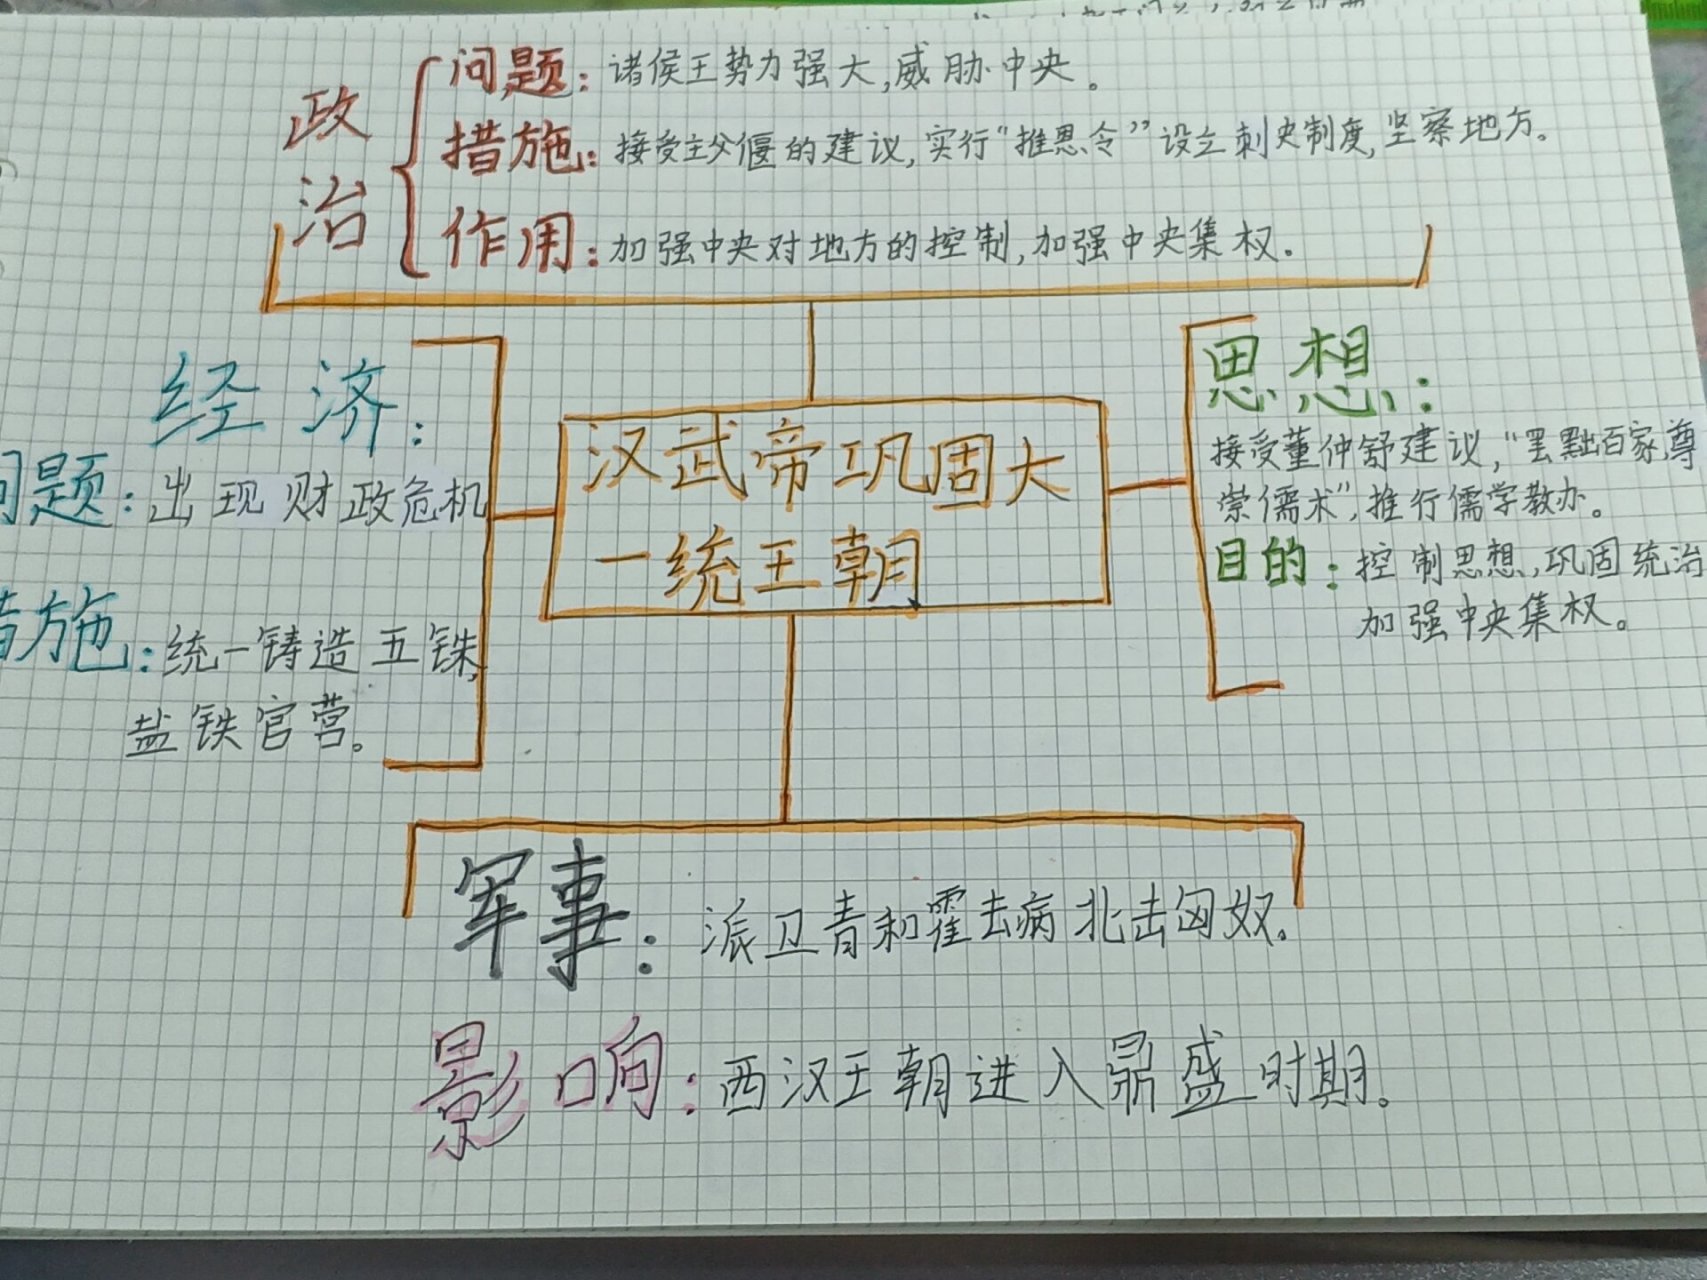 政治
问题：诸侯王势力强大,威胁中央。
措施：接受主父偃的建议,实行"推恩令"设立刺史制度,坚察地方。
作用：加强中央对地方的控制,加强中央集权.
经济：
问题：出现财政危机
措施：统一铸造五铢,
盐铁官营。
汉武帝巩固大
一统王朝
思想：
接受董仲舒建议,"罢黜百家,尊
崇儒术",推行儒学教办。
目的：控制思想,巩固统治
加强中央集权。
军事：派卫青和霍去病北击匈奴.
影响：西汉王朝进入鼎盛时期。